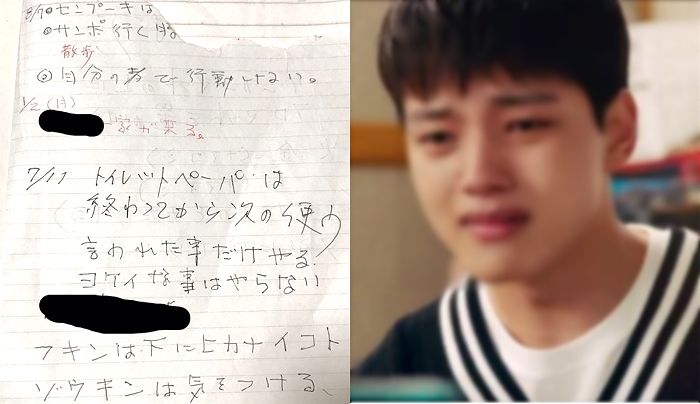 8/7 ◎センプーキは
◎サンポ行く時
散歩
◎自分の考で行動しない。
1/2(月)
一家が来る。
7/11 トイレットペーパーは
終わってから次の使う
言われた事だけやる。
ヨケイな事はやらない
フキンは下にヒカナイコト
ゾウキンは気をつける、